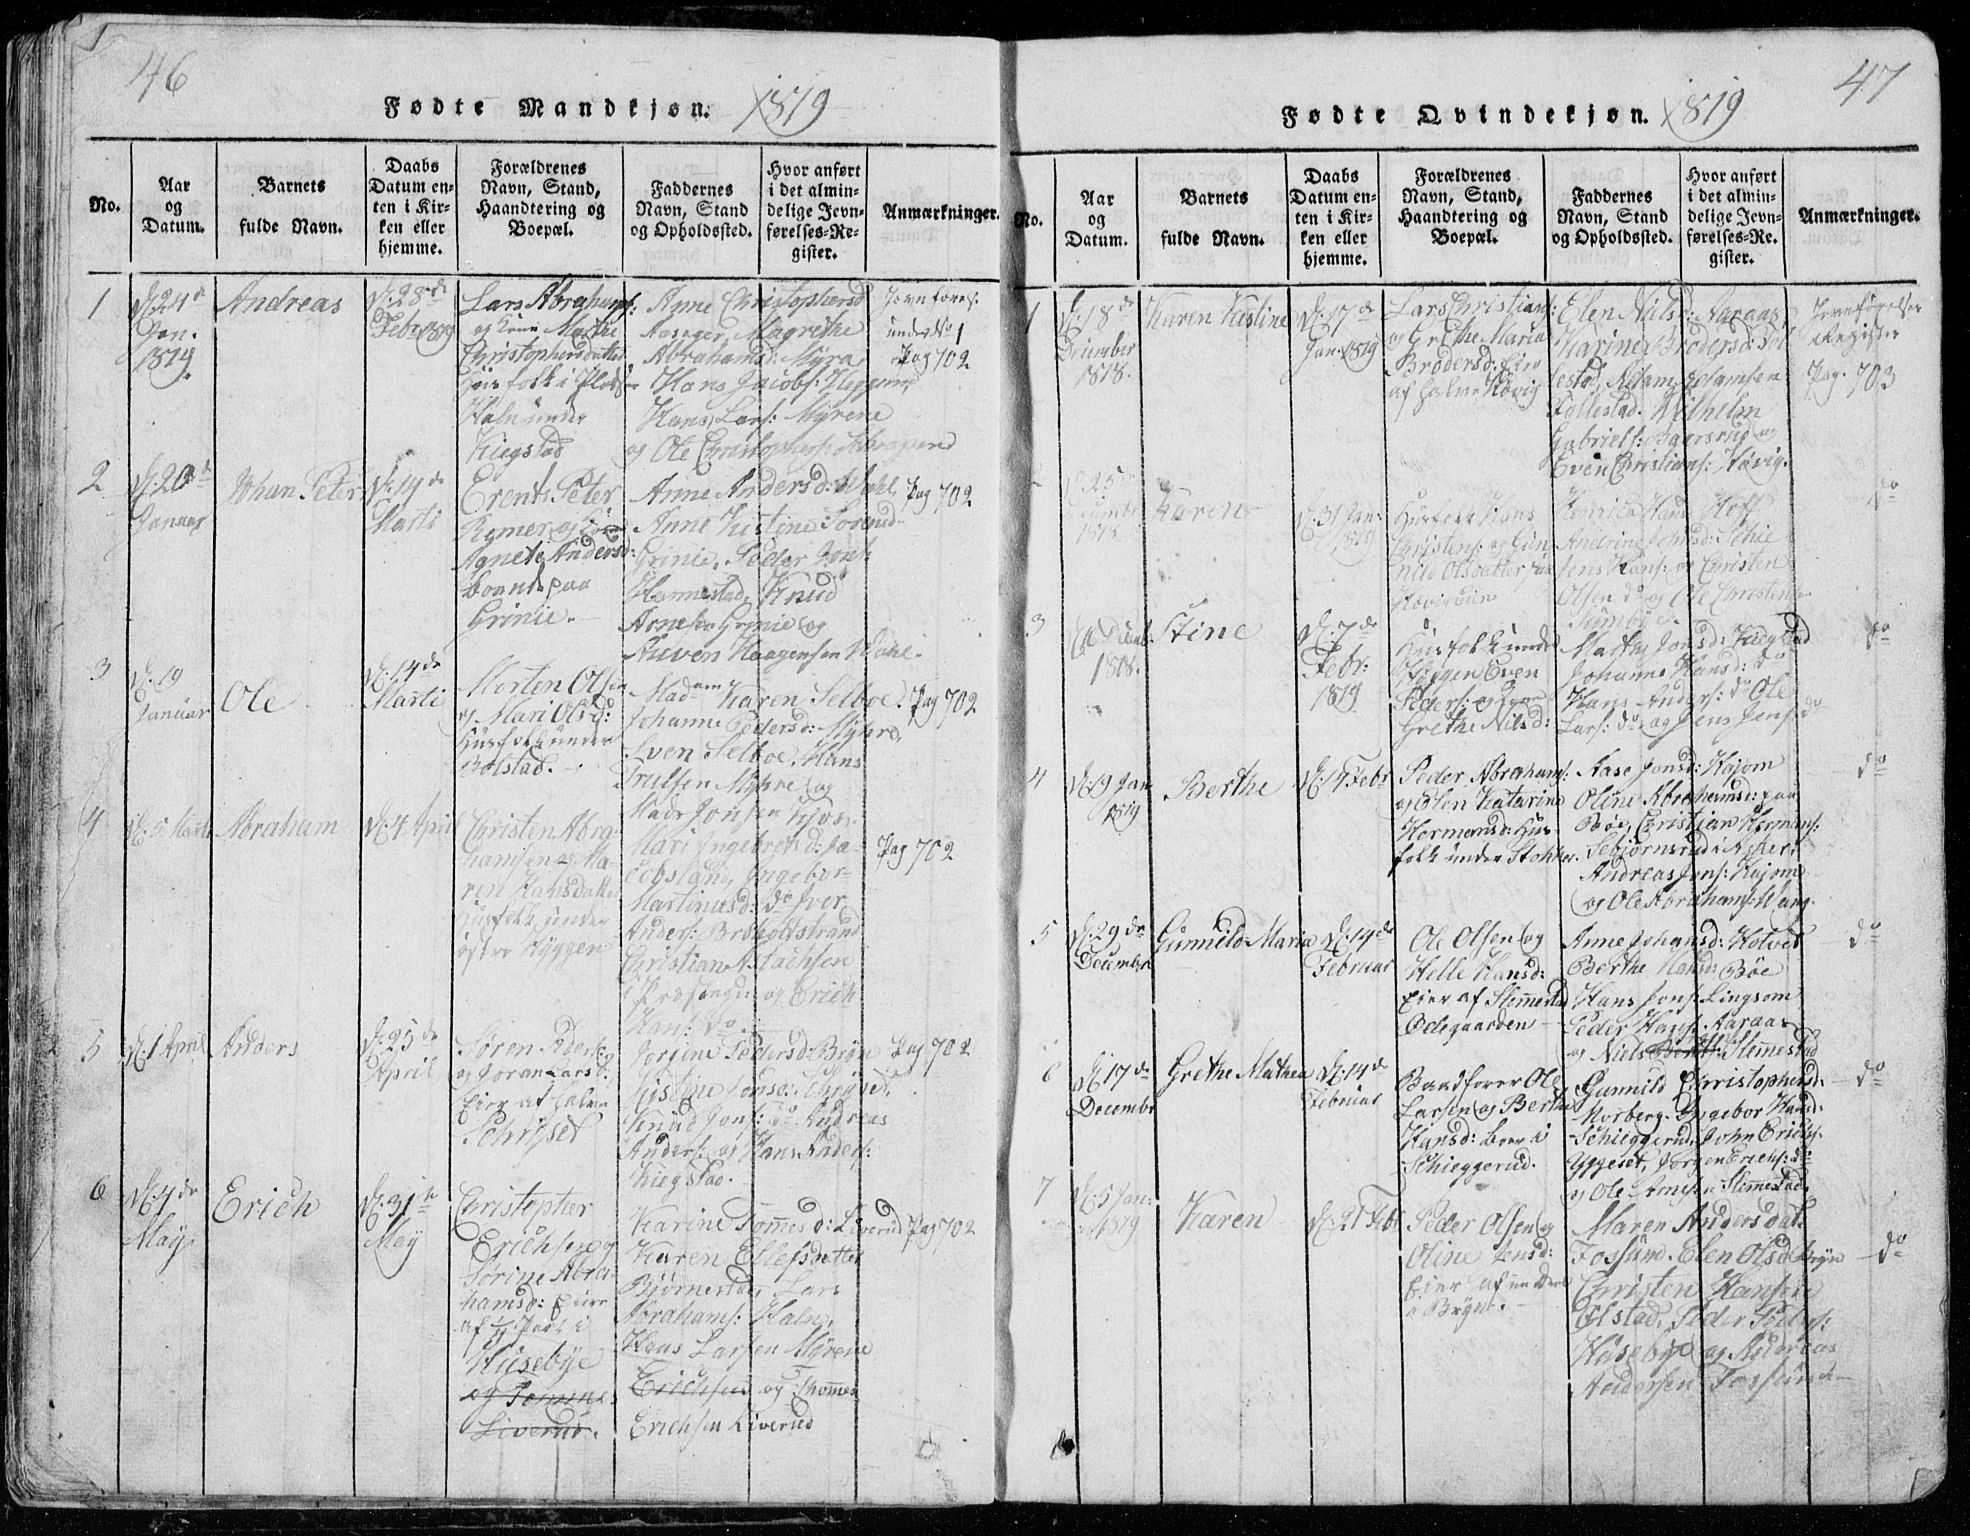 46
Fødte Mandkjøn. 1819
No.
Aar
og
Datum.
Barnets
fulde Navn.
Daabs
Datum en-
ten i Kir-
ken eller
hjemme.
Forældrenes
Navn, Stand,
Haandtering og
Boepæl.
Faddernes
Navn, Stand
og Opholdssted.
Hvor anført
i det almin-
delige Jevn-
førelses-Re-
gister.
Anmærkninger.
1
D. 24de
Jan.
1819.
Andreas
D. 28de
Febr 1819
Lars Abrahams:
og Kone Marthe
Christophersdatter
Huusfolk i Pladsen
Haln under
Kiegstad
Anne Christophersd
Aasager, Magrethe
Abrahamsd: Myra
Hans Jacobs: Huggen
Hans Lars: Myrene
og Ole Christophers:
Jevnførels:
under No 1
Pag 702
2
D. 20de
Januar
Johan Peter
D. 14de
Marti
Erents Peter
Romer og Kone
Agnete Andersd:
boende paa
Grinie.
Anne Andersd: Wahl
Anne Kistine Sorensd
Grinie, Peder Jons:
Hannestad, Knud
Arnesen Grinie og
Auven Haagensen Wahl.
Pag 702
3
D. 19
Januar
Ole
D. 14de
Marti
Morten Olsen
og Mari Olsd:
Huusfolk under
Bolstad.
Madam Karen Selboe.
Johanne Pedersd: Myhre,
Sven Selboe, Hans
Trulsen Myhre og
Mads Jonsen
Pag 702
4
D. 5 Marti
Abraham
D. 4 April
Christen Abra-
hamsen og Ma-
ren Hansdatter
Huusfolk under
østre Huggen
Mari Ingebretsd: Ja-
cobsland, Ingebor-
Martinusd: do Iver
Anders: Brøholtstrand
Christian A. Isachsen
og Erich
Hans: do
Pag 702
5
D. 1 April
Anders
D. 25de
April
Søren Peders:
og Joran Larsd:
Eier af halve
Schryset
Jorjine Pedersd: Bryn
Kistine Jonsd:
Knud Jons: do Andreas
Anders: og Hans Anders:
Kiegstad.
Pag 702
6
D. 4de
May
Erich
D. 31te
May
Christopher
Erichsen og
Sørine Abra-
hamsd: Eier
af ½ Part i
Husebye
og Tommes
Liverud.
Karine Tommesd: Liverud
Karen Ellefsdatter
Bjørnestad, Lars
Abrahams: Haln,
Hans Larsen Myrene
Erichsen og Thommes
Erichsen Liverud
Pag 702
47
Fødte Qvindekjøn. 1819
No.
Aar
og
Datum.
Barnets
fulde Navn.
Daabs
Datum en-
ten i Kir-
ken eller
hjemme.
Forældrenes
Navn, Stand,
Haandtering og
Boepæl.
Faddernes
Navn, Stand
og Opholdssted.
Hvor anført
i det almin-
delige Jevn-
førelses-Re-
gister.
Anmærkninger.
1
D. 18de
December
1818.
Karen Kistine
D. 17de
Jan. 1819
Lars Christians:
og Grethe Maria
Brodersd: Eier
af halve Høvig
Elen Nilsd: Aaraas,
Karine Brodersd: Fol
lestad, Adam Adamsen
Follestad. Wilhelm
Gabriels: Baarsrud og
Even Christians: Høvig.
Jevnførelses
Register
Pag. 703
2
D. 25de
Decembr
1818
Karen
D. 31 Jan:
1819
Huusfolk Hans
Christens: og Gun-
nild Olsdatter paa
Høvig Eien
Henrik Hans Hoff
Andrine
Jens Hans: og Christen
Olsen do og Ole Christens:
do
3
1818.
Stine
D. 7de
Febr:
1819
Huusfolk under
Huggen Even
Peders: og
Grethe Nilsd:
Marthe Jonsd: Kiegstad
Johanne Hansd: do
Hans Anders: do Ole
Lars: do og Jens Jens: do
do
4
D. 19 Jan
1819
Berthe
D. 14 Febr
Peder Abrahams:
og Elen Katarina
Hermansd: Huus-
folk under Stokker.
Aase Jonsd: Hajom
Oline Abrahamsd: paa
Bøe, Christian Hermans:
Sebjørnsrud i Asker,
Andreas Jens: Hajom
og Ole Abrahams: Wang.
do
5
D. 29de
Decembr
Gunnild Maria
D. 14de
Februar
Ole Olsen og
Helle Hansd:
Eier af Slemmestad
Ødegaarden
Anne Johansd: Holvet
Berthe Hansd: Bøe
Hans Jons: Lingsom
Peder Hans: Aaraas
og Niels Slemmestad
do
6
D. 17de
Decembr
Grethe Mathea
D. 14de
Februar
Baadforer Ole
Larsen og Berthe
Hansd: boer i
Schieggerud.
Gunnild Christophersd:
Morberg. Ingebor Hansd:
Schieggerud, John Erichs:
Yggeset, Jørgen Erichs: do
og Ole Arnesen Slemmestad
do
7
D. 5 Jan:
1819
Karen
D. 21 Febr
Peder Olsen og
Oline Jensd:
Eier af en Deel
i Bryn.
Maren Andersdat.
Fossum. Elen Olsd Bryn
Christen Hansen
Ølstad, Peder Peders:
Husebye og Andreas
Andersen Fossum
do